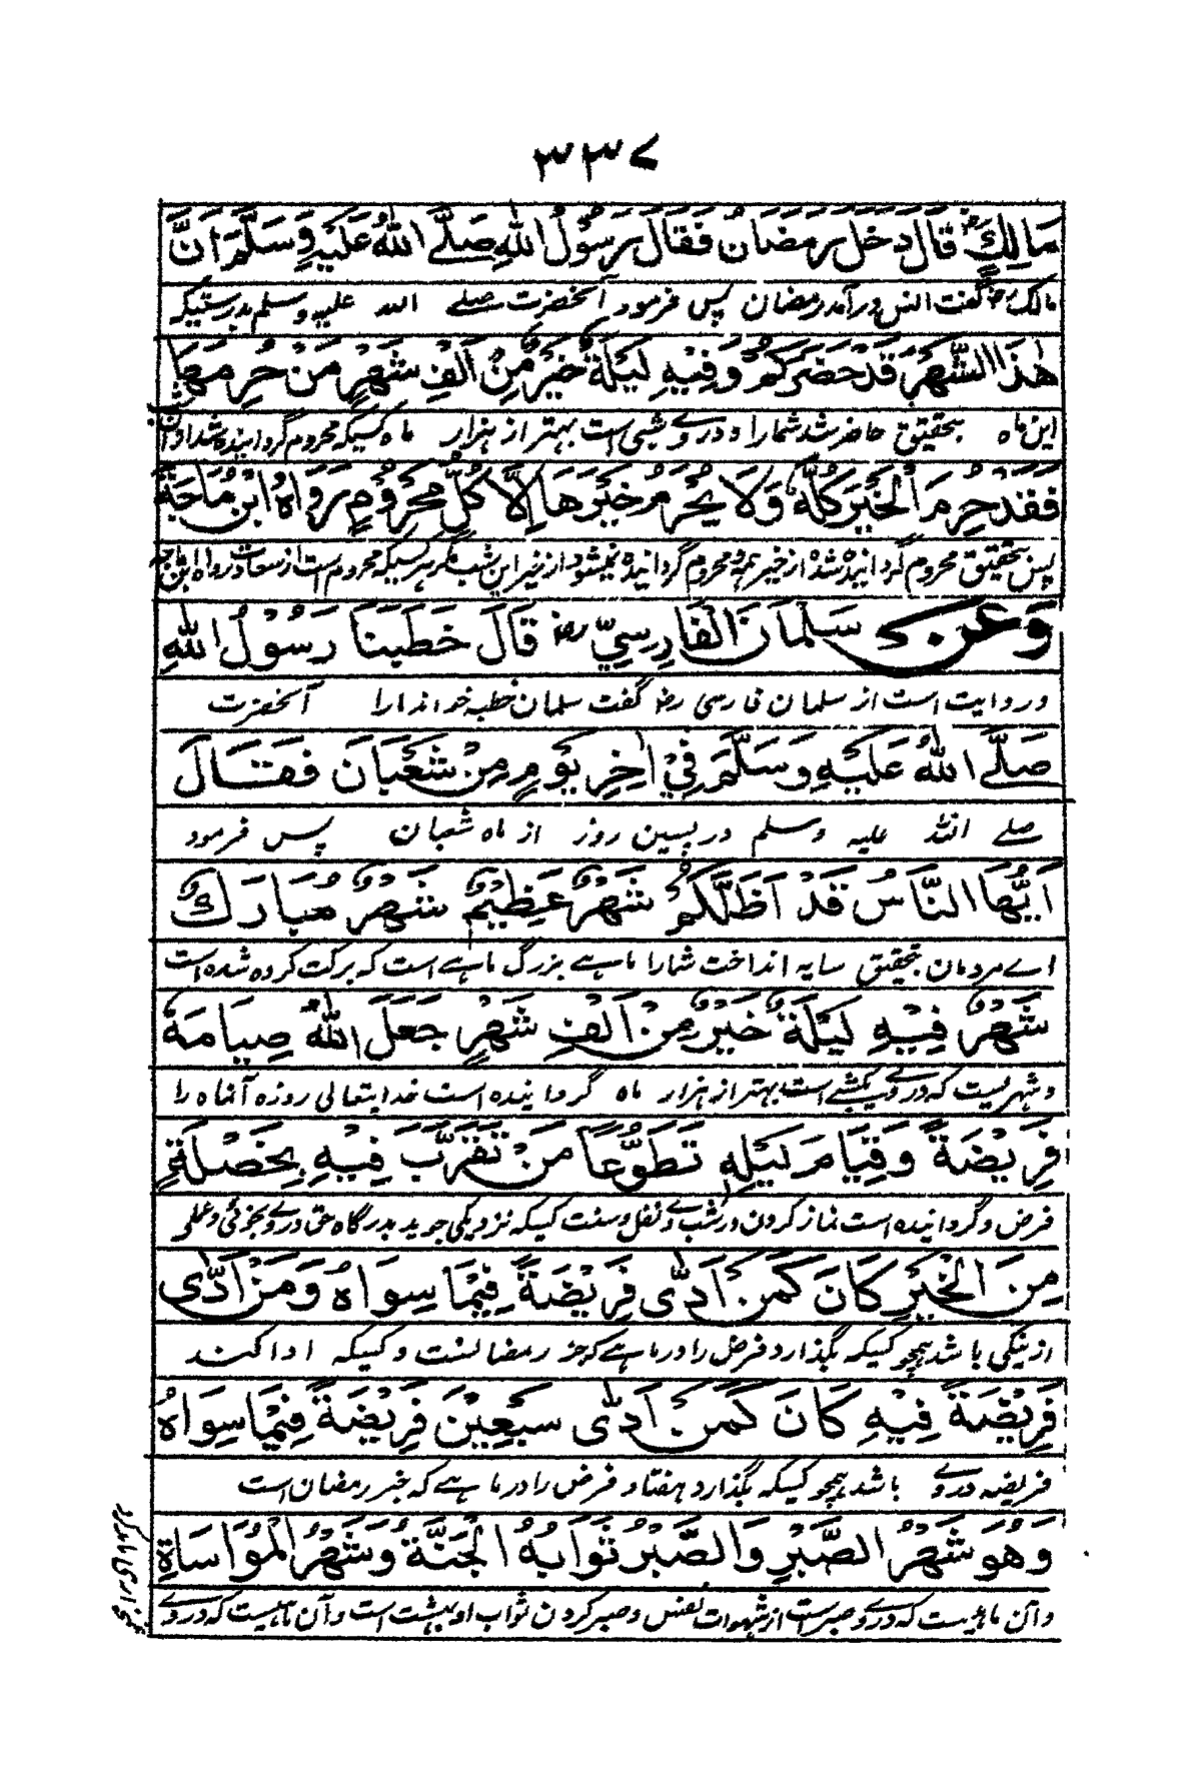 ۳۳۷
مَالِكٍ رض قَالَ دَخَلَ رَمَضَانُ فَقَالَ رَسُوْلُ اللهِ صَلَّے اللهُ عَلَيْهِ وَسَلَّمَ اَنَّ
مالک رض گفت انس درآمد رمضان پس فرمود آنحضرت صلے الله علیه وسلم بدرستیکه
هٰذَا الشَّهْرَ قَدْ حَضَرَكُمْ وَفِيْهِ لَيْلَةٌ خَيْرٌ مِّنْ اَلْفِ شَهْرٍ مَنْ حُرِمَهَا
این ماه بتحقیق حاضر شد شمارا و دروے شبی است بهتر از هزار ماه کسیکه محروم گردانیده شد از آن شب
فَقَدْ حُرِمَ الْخَيْرَ كُلَّهٗ وَلَا يُحْرَمُ خَيْرَهَا اِلَّا كُلُّ مَحْرُوْمٍ رَوَاهُ ابْنُ مَاجَةَ
پس بتحقیق محروم گردانیده شد از خیر همه و محروم گردانیده نمیشود از خیر این شب مگر هر کسیکه محروم است از سعادت رواه ابن ماجه
وَعَنْ سَلْمَانَ الْفَارِسِيِّ رض قَالَ خَطَبَنَا رَسُوْلُ اللهِ
و روایت است از سلمان فارسی رض گفت سلمان خطبه خواند ما را آنحضرت
صَلَّے اللهُ عَلَيْهِ وَسَلَّمَ فِيْ اٰخِرِ يَوْمٍ مِنْ شَعْبَانَ فَقَالَ
صلے الله علیه وسلم در پسین روز از ماه شعبان پس فرمود
اَيُّهَا النَّاسُ قَدْ اَظَلَّكُمْ شَهْرٌ عَظِيْمٌ شَهْرٌ مُبَارَكٌ
اے مردمان بتحقیق سایه انداخت شمارا ماہے بزرگ ماہے است که برکت کرده شده است
شَهْرٌ فِيْهِ لَيْلَةٌ خَيْرٌ مِنْ اَلْفِ شَهْرٍ جَعَلَ اللهُ صِيَامَهٗ
و شهریست که دروے یکشبے است بهتر از هزار ماه گردانیده است خدایتعالی روزه آنماه را
فَرِيْضَةً وَقِيَامَ لَيْلِهٖ تَطَوُّعًا مَنْ تَقَرَّبَ فِيْهِ بِخَصْلَةٍ
فرض و گردانیده است نماز کردن در شب وے نفل و سنت کسیکه نزدیکی جوید بدرگاه حق دروے بجزئی و عملی
مِنَ الْخَيْرِ كَانَ كَمَنْ اَدّٰى فَرِيْضَةً فِيْمَا سِوَاهُ وَمَنْ اَدّٰى
از نیکی باشد همچو کسیکه بگذارد فرض را در ماہے که جز رمضانست و کسیکه ادا کند
فَرِيْضَةً فِيْهِ كَانَ كَمَنْ اَدّٰى سَبْعِيْنَ فَرِيْضَةً فِيْمَا سِوَاهُ
فریضه دروے باشد همچو کسیکه بگذارد هفتاد فرض را در ماہے که جز رمضان است
وَهُوَ شَهْرُ الصَّبْرِ وَالصَّبْرُ ثَوَابُهُ الْجَنَّةُ وَشَهْرُ الْمُؤَاسَاةِ
و آن ماهیست که دروے صبر است از شهوات نفس و صبر کردن ثواب او بهشت است و آن ماهیست که دروے